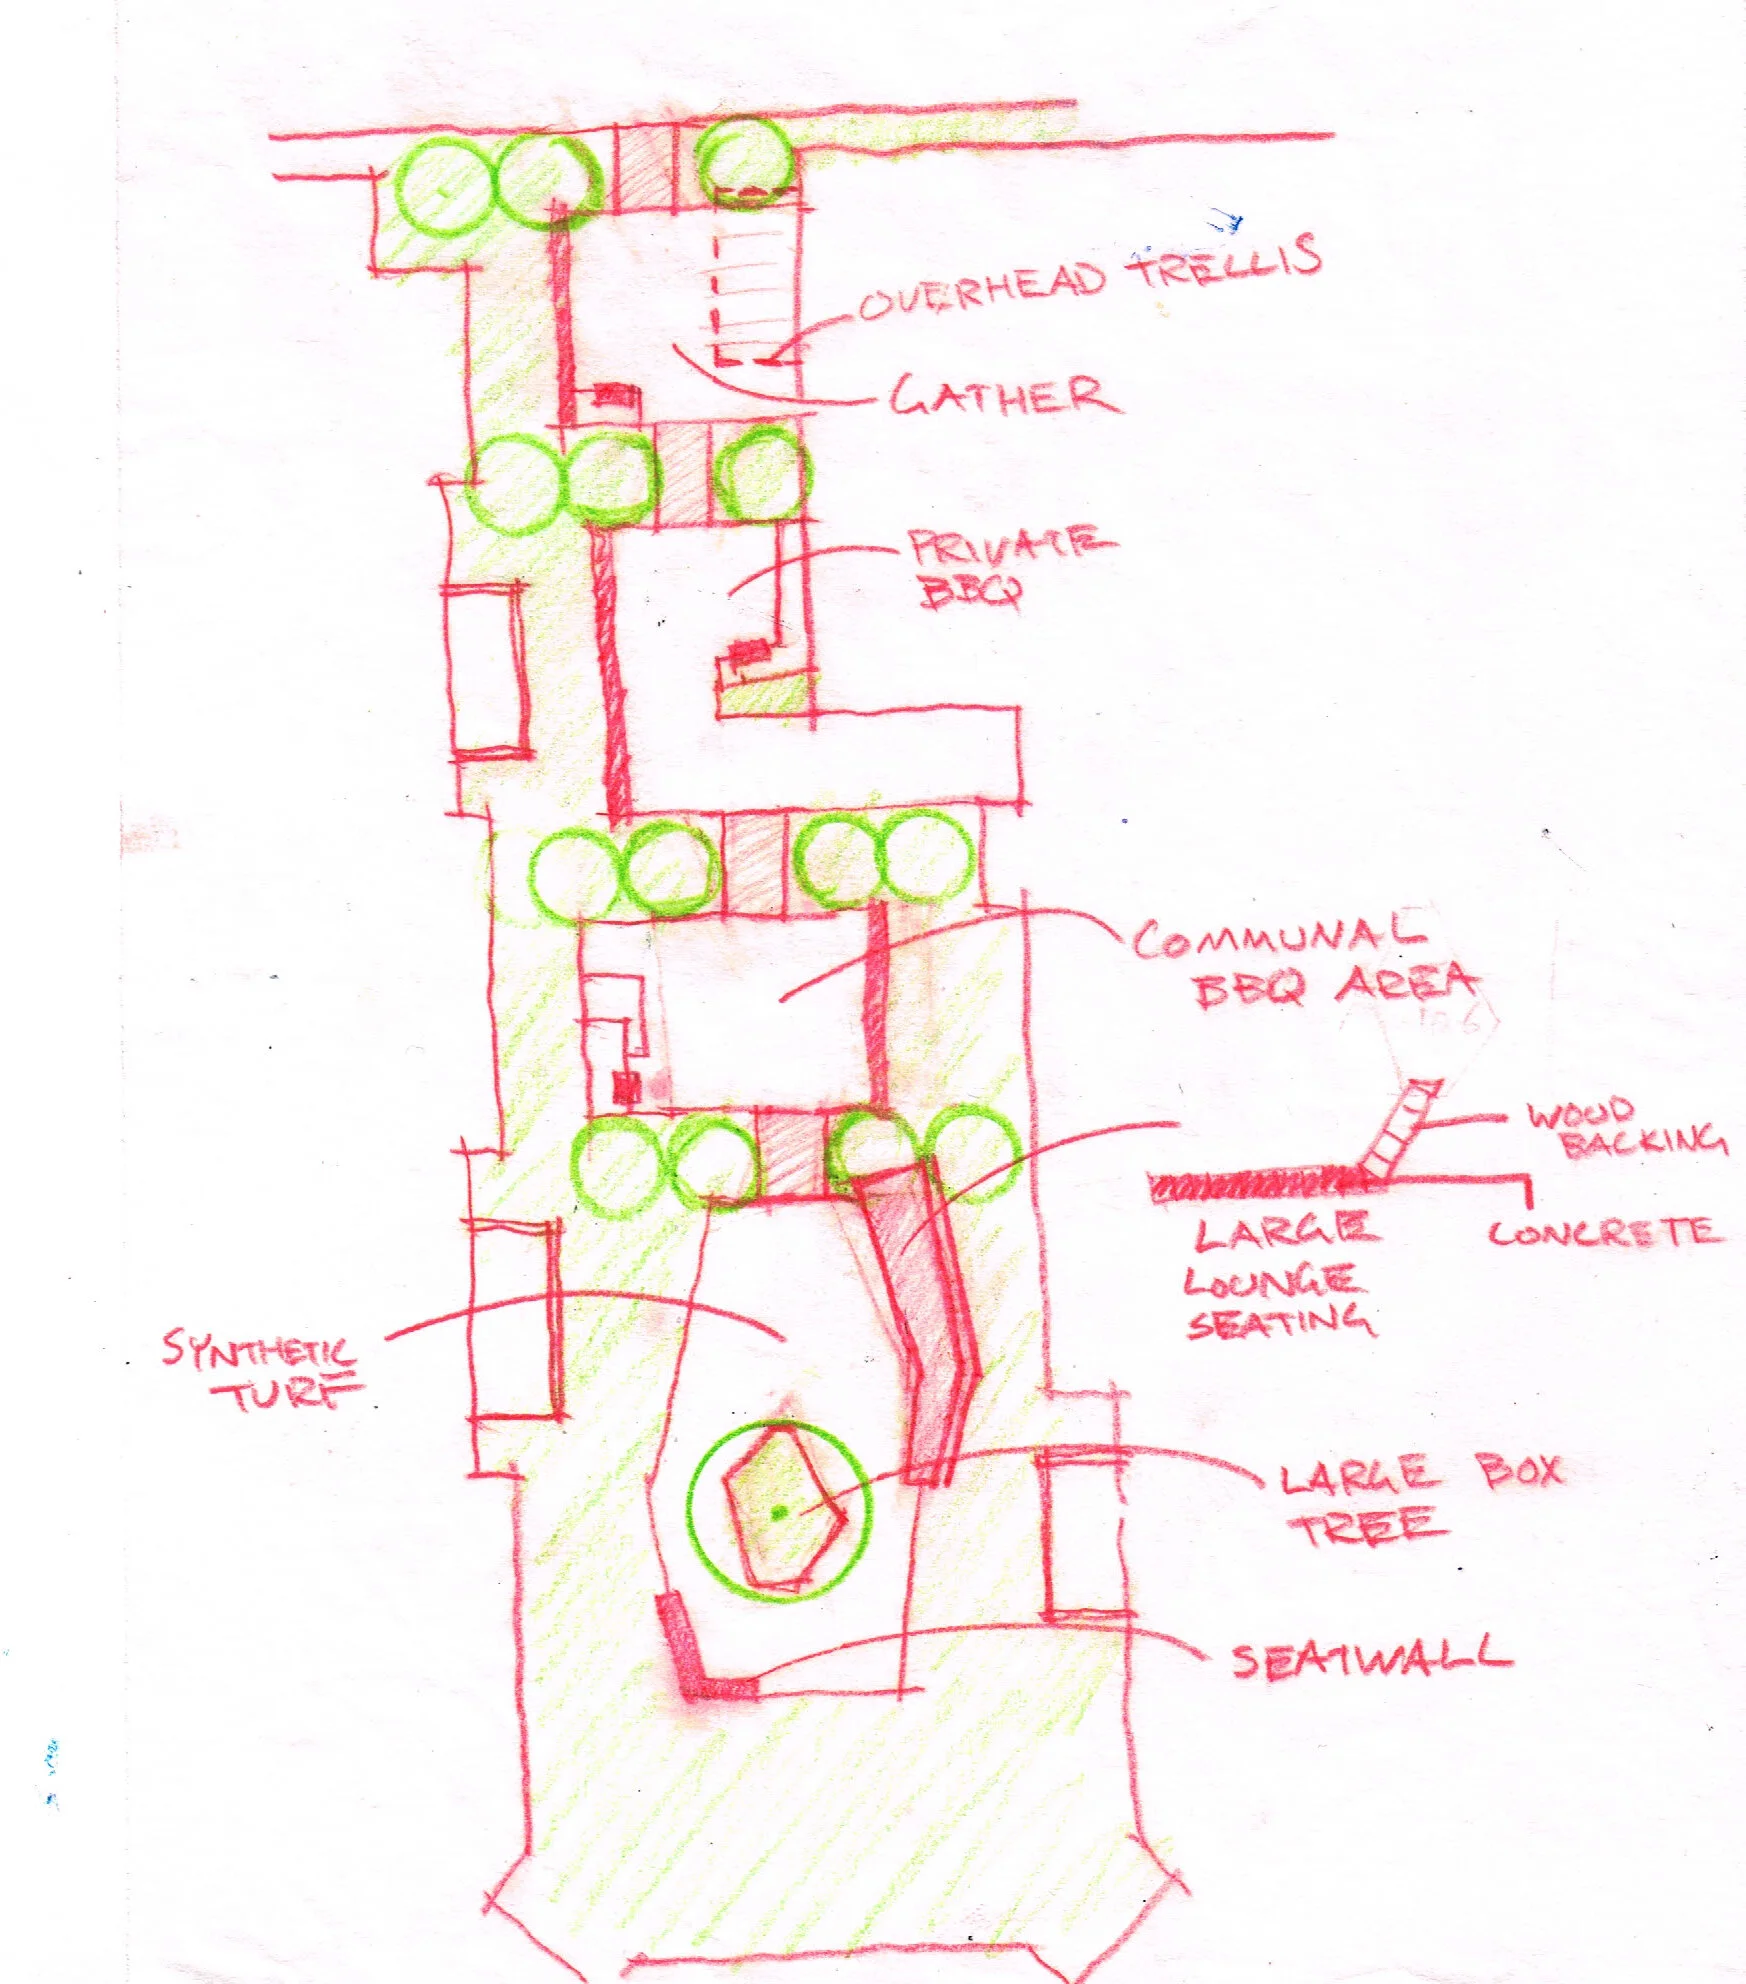 OVERHEAD TRELLIS
GATHER
PRIVATE
BBQ
COMMUNAL
BBQ AREA
WOOD
BACKING
LARGE
LOUNGE
SEATING
CONCRETE
SYNTHETIC
TURF
LARGE BOX
TREE
SEATWALL